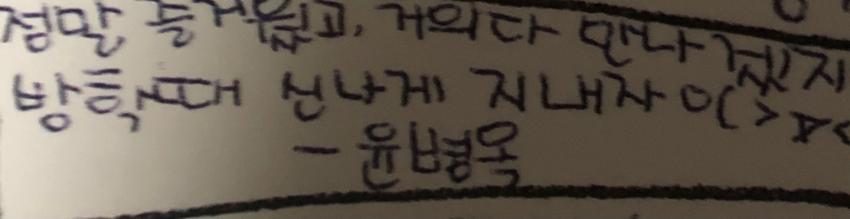 정말 즐거웠고, 거의다 만나겠지
방학때 신나게 지내자 O(>ㅁ<
- 윤병옥